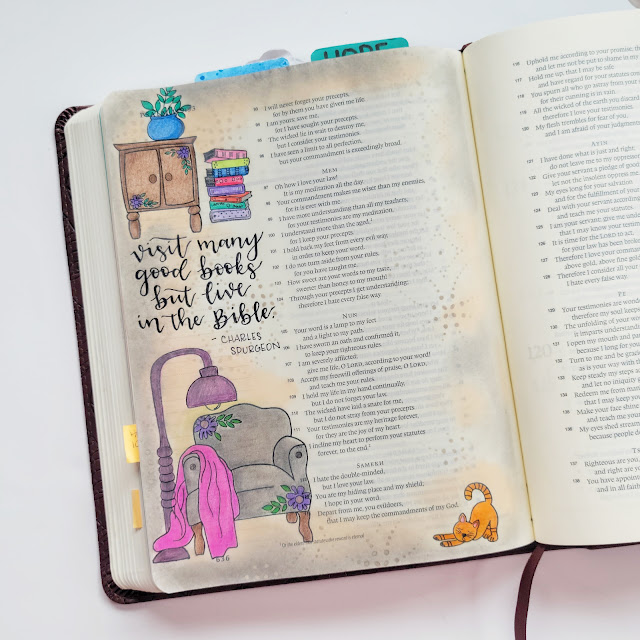 HOPE
93 I will never forget your precepts,
for by them you have given me life.
94 I am yours; save me,
for I have sought your precepts.
95 The wicked lie in wait to destroy me,
but I consider your testimonies.
96 I have seen a limit to all perfection,
but your commandment is exceedingly broad.
MEM
97 Oh how I love your law!
It is my meditation all the day.
98 Your commandment makes me wiser than my enemies,
for it is ever with me.
99 I have more understanding than all my teachers,
for your testimonies are my meditation.
100 I understand more than the aged,
for I keep your precepts.
101 I hold back my feet from every evil way,
in order to keep your word.
102 I do not turn aside from your rules,
for you have taught me.
103 How sweet are your words to my taste,
sweeter than honey to my mouth!
104 Through your precepts I get understanding;
therefore I hate every false way.
visit many
good books
but live
in the Bible.
- CHARLES
SPURGEON
NUN
105 Your word is a lamp to my feet
and a light to my path.
106 I have sworn an oath and confirmed it,
to keep your righteous rules.
107 I am severely afflicted;
give me life, O LORD, according to your word!
108 Accept my freewill offerings of praise, O LORD,
and teach me your rules.
109 I hold my life in my hand continually,
but I do not forget your law.
110 The wicked have laid a snare for me,
but I do not stray from your precepts.
111 Your testimonies are my heritage forever,
for they are the joy of my heart.
112 I incline my heart to perform your statutes
forever, to the end.
SAMEKH
I hate the double-minded,
but I love your law.
You are my hiding place and my shield;
I hope in your word.
Depart from me, you evildoers,
that I may keep the commandments of my God.
636
116 Uphold me according to your promise,
and let me not be put to shame in my
117 Hold me up, that I may be safe
and have regard for your statutes
118 You spurn all who go astray from
for their cunning is in vain.
119 All the wicked of the earth you
therefore I love your testimonies
120 My flesh trembles for fear of you,
and I am afraid of your judgments
AYIN
121 I have done what is just and right;
do not leave me to my oppressors
122 Give your servant a pledge of good;
let not the insolent oppress me
123 My eyes long for your salvation
and for the fulfillment of your
124 Deal with your servant according
and teach me your statutes.
125 I am your servant; give me
that I may know your
126 It is time for the LORD to act,
for your law has been broken
127 Therefore I love your
above gold, above fine gold
128 Therefore I consider all your
I hate every false way.
129 Your testimonies are
therefore my soul keeps
130 The unfolding of your
it imparts understanding
131 I open my mouth and
because I long for
132 Turn to me and be gracious
as is your way with
133 Keep steady my steps
and let no iniquity
134 Redeem me from
that I may keep your
135 Make your face shine
and teach me your
136 My eyes shed streams
because people do
137 Righteous are you,
and right are
138 You have appointed
and in all